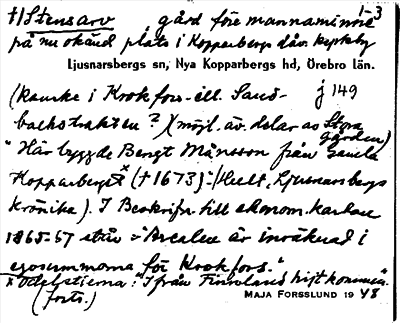 †/Stensarv gård före mannaminne 1-3
på nu okänd plats i Kopparbergs dåv. kaptkby
Ljusnarsbergs sn, Nya Kopparbergs hd, Örebro län.
(kanske i Krokfors- ell. Sand- j 149
backstrakten?) (möjl. äv. delar av Stora gården)
"Här byggde Bengt Månsson från Gamla
Kopparberget x (†1673)"(Hult, Ljusnarsbergs
krönika). I Beskrifn. till ekonom. kartan
1865-67 står: "Arealen är inräknad i
egosummorna för Krokfors."
x Odelstierna: "I från Finnland hijt kommen".
(forts.) MAJA FORSSLUND 1948